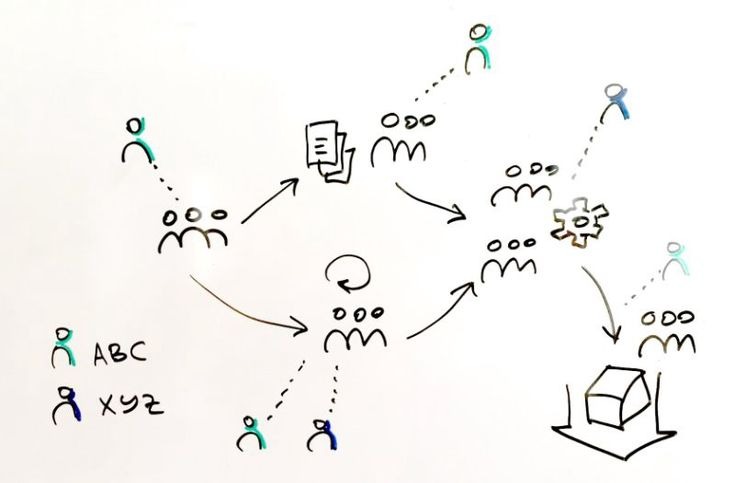 ABC
XYZ